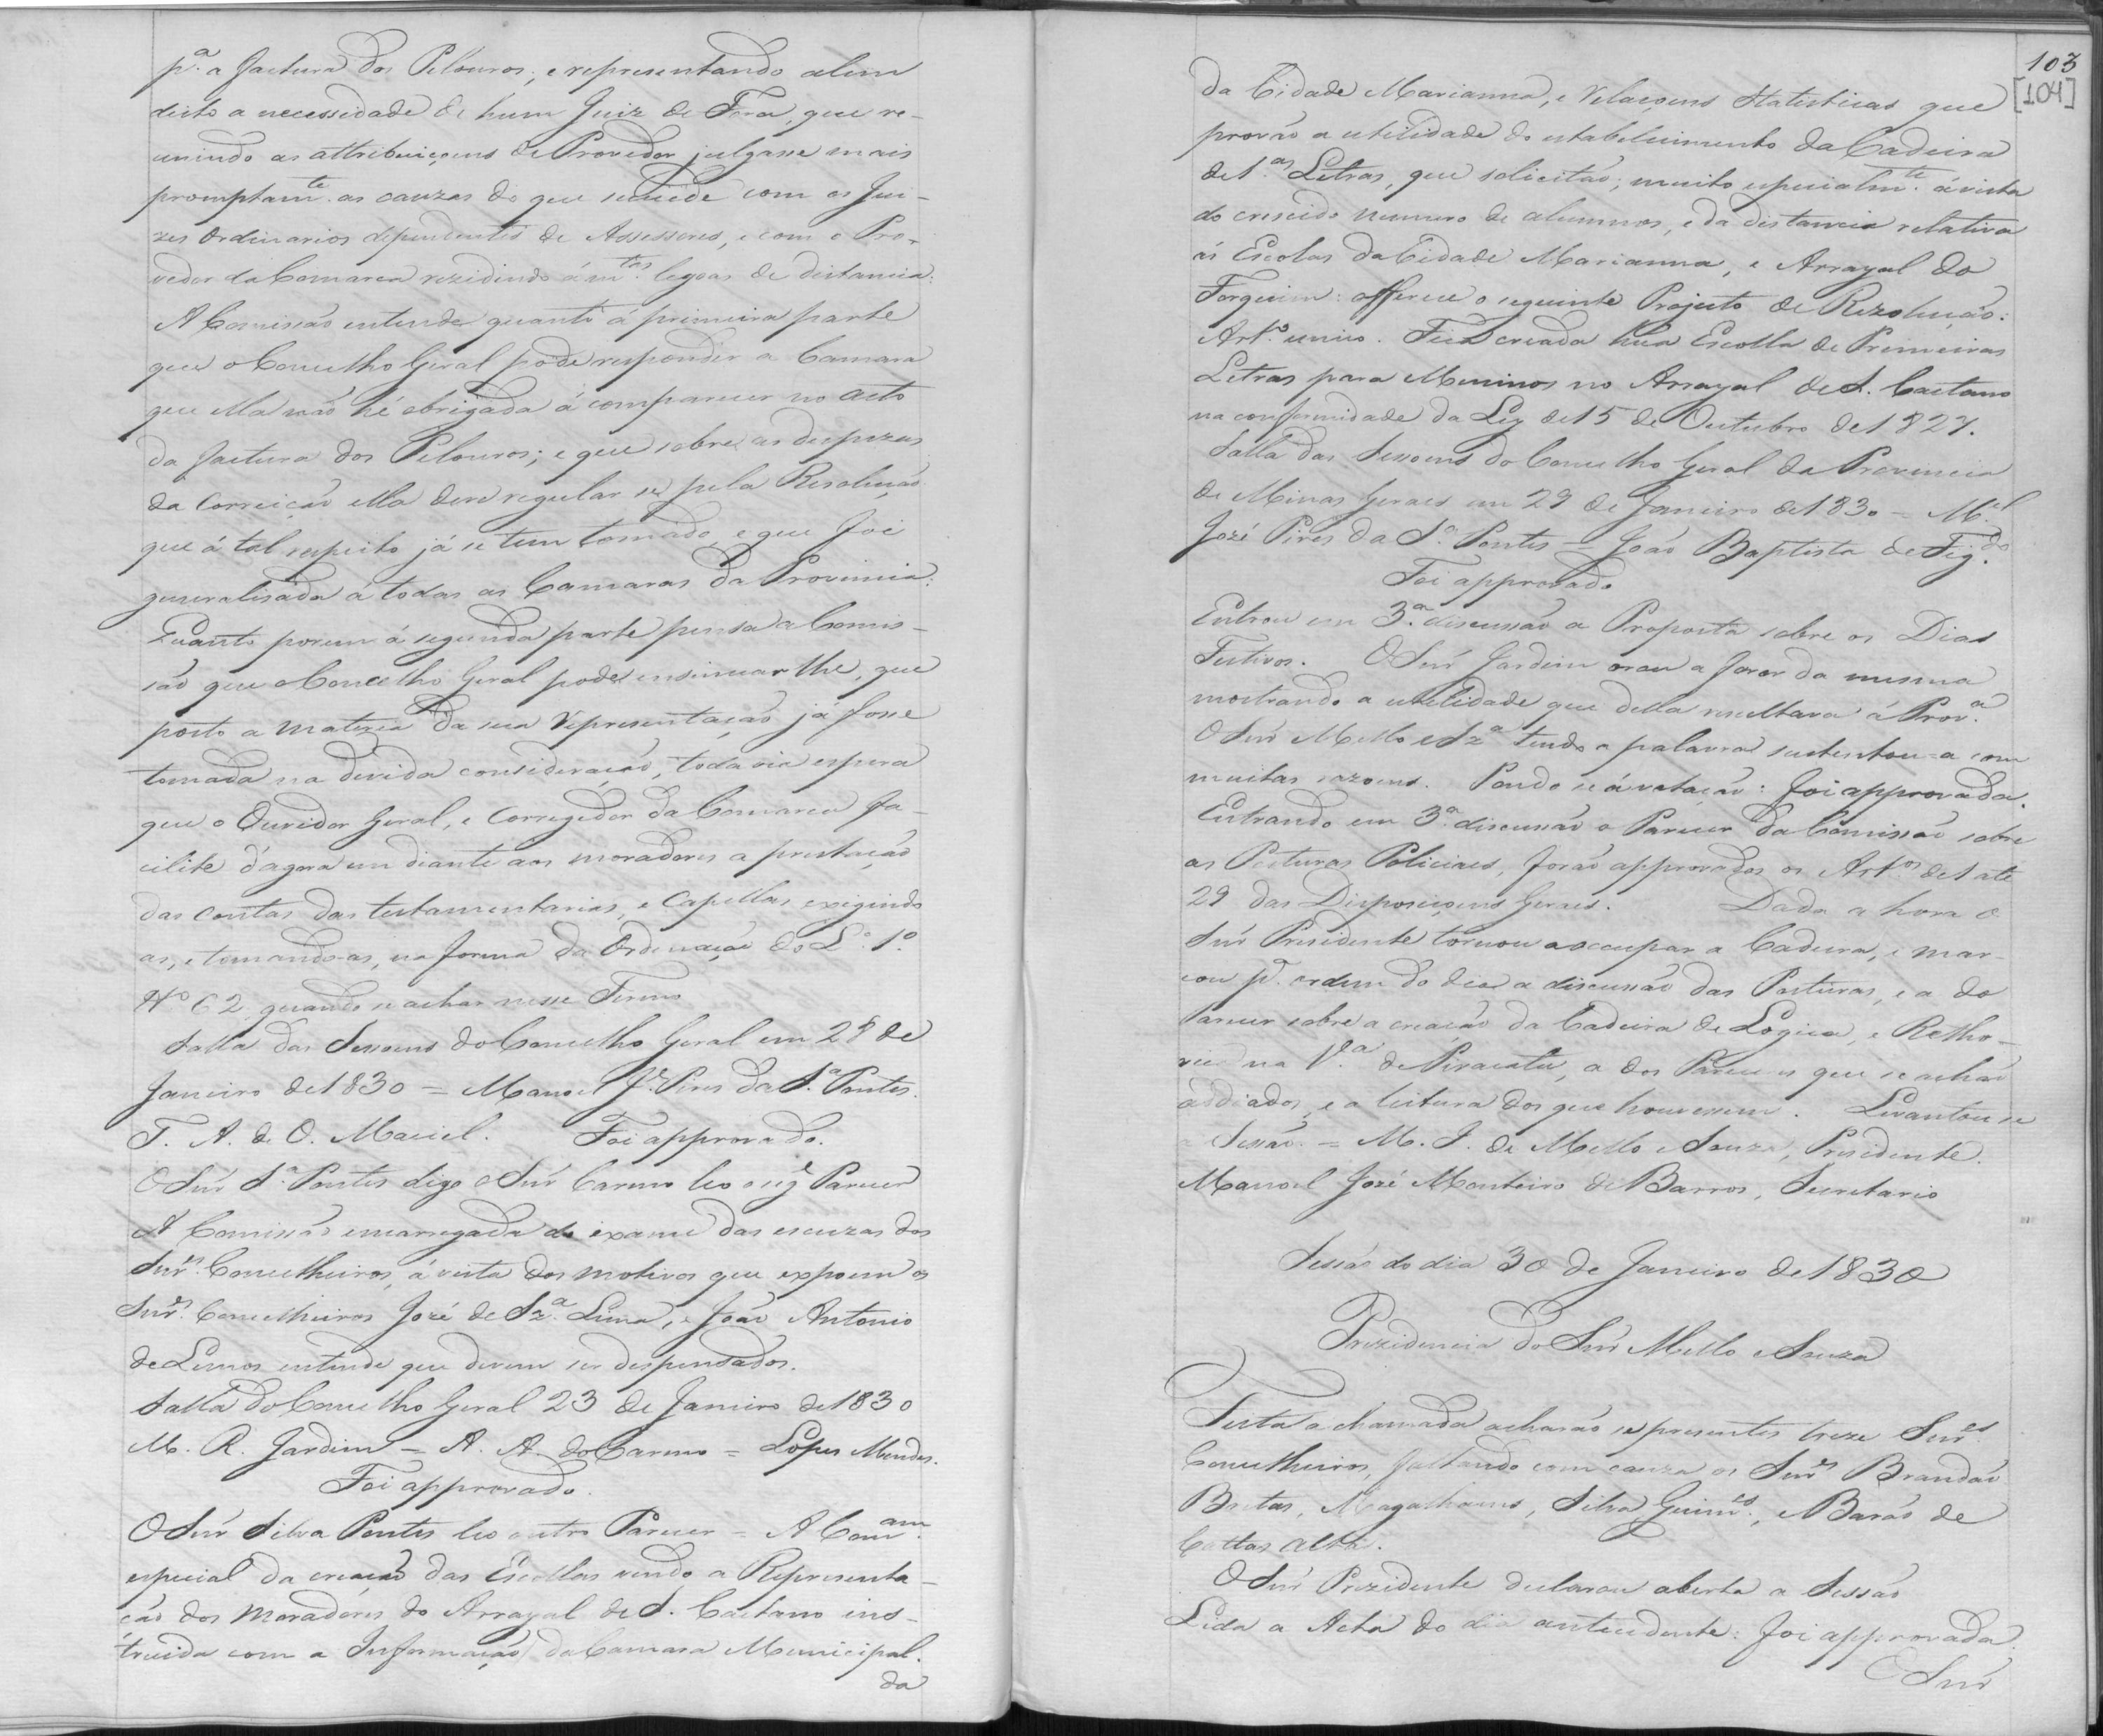 p.ª a factura dos Pelouros; e representando alem
disto a necessidade de hum Juiz de Fora, que re-
unindo as attribuiçoens de Provedor julgasse mais
promptam.te as cauzas do que succede com os Jui-
zes Ordinarios dependentes de Assessores, e com o Pro-
vedor da Comarca rezidindo á m.tas legoas de distancia:
A Comissão entende quanto á primeira parte
que o Concelho Geral pode responder a Camara
que ella não hé obrigada á comparecer no acto
da factura dos Pelouros; e que sobre as despezas
da Correição ella deve regular se pela Resolução
que á tal respeito já se tem tomado, e que foi
generalisada a todas as Camaras da Provincia:
Quanto porem á segunda parte pensa a Comis-
são que o Concelho Geral pode insinuar lhe, que
posto a materia da sua Representação já fosse
tomada na devida consideração, toda via espera
que o Ouvidor Geral, e Corregedor da Comarca fa-
cilite d'agora em diante aos moradores a prestação
das contas das testamentarias, e Capellas exigindo
as, e tomando-as, na forma da Ordenação do L.º 1.º
Nº 62, quando se achar nesse Termo
Salla das Sessoens do Concelho Geral em 28 de
Janeiro de 1830 = Manoel J.e Pires da S.ª Pontes.
T. A. de O. Maciel. Foi approvado.
O Snr̃ S.ª Pontes digo o Snr̃ Carmo leo o seg.e Parecer
A Comissão encarregada do exame das escuzas dos
Snr.es Concelheiros, á vista dos motivos que expoem os
Snr.es Concelheiros José de Sz.ª Lima, e João Antonio
de Lemos entende que devem ser despensados.
Salla do Concelho Geral 23 de Janeiro de 1830
M. R. Jardim = A. A. do Carmo = Lopes Mendes.
Foi approvado.
O Snr̃ Silva Pontes leo outro Parecer = A Com.am
especial da creação das Escollas vendo a Representa-
ção dos Moradores do Arrayal de S. Caetano ins-
truida com a Informação da Camara Municipal.
da
103
[104]
da Cidade Marianna, e Relaçoens Statisticas que
provão a utilidade do estabelecimento da Cadeira
de 1.as Letras, que solicitão; muito especialm.te á vista
do crescido numero de alumnos, e da distancia relativa
ás Escolas da Cidade Marianna, e Arrayal do
Forquim: offerece o seguinte Projecto de Rezolução:
Art.º unico. Fica creada hũa Escolla de Primeiras
Letras para Meninos no Arrayal de S. Caetano
na conformidade da Ley de 15 de Outubro de 1827.
Salla das Sessoens do Concelho Geral da Provincia
de Minas Geraes em 29 de Janeiro de 1830 = M.el
José Pires da S.ª Pontes = João Baptista de Fig.do
Foi approvado
Entrou em 3.ª discussão a Proposta sobre os Dias
Festivos. O Snr̃ Jardim orou a favor da mesma
mostrando a utilidade que della resultava á Prov.ª
O Snr̃ Mello e Sz.ª tendo a palavra sustentou-a com
muitas razoens. Pondo se á votação: foi approvada.
Entrando em 3.ª discussão o Parecer da Comissão sobre
as Posturas Policiaes, forão approvados os Art.os de 1 até
29 das Disposiçoens Geraes. Dada a hora o
Snr̃ Presidente tornou a occupar a Cadeira, e mar-
cou p.ª ordem do dia a discussão das Posturas, e a do
Parecer sobre a creação da Cadeira de Logica, e Retho-
rica na V.ª de Piracatu, a dos Pareceres que se achão
addiados, e a leitura dos que houverem. Levantou se
a Sessão. = M. I. de Mello e Souza, Presidente.
Manoel José Monteiro de Barros, Secretario
Sessão do dia 30 de Janeiro de 1830
Prezidencia do Snr̃ Mello e Souza
Feita a chamada acharão se presentes treze Snr.es
Concelheiros, faltando com cauza os Snr.es Brandão
Bretas, Magalhaens, Silva Guim.es, e Barão de
Cattas altas.
O Snr̃ Prezidente declarou aberta a Sessão
Lida a Acta do dia antecedente: foi approvada.
O Snr̃